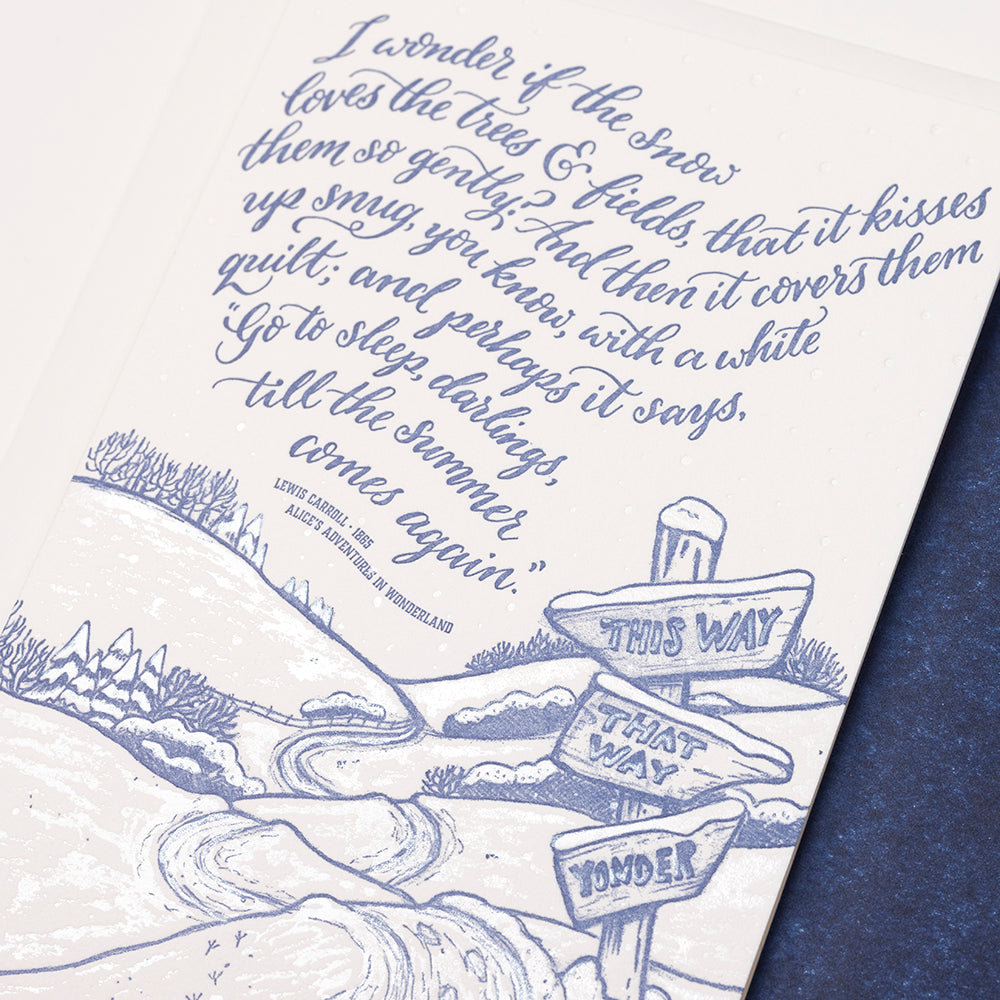 I wonder if the snow
loves the trees & fields, that it kisses
them so gently? And then it covers them
up snug, you know, with a white
quilt; and perhaps it says,
"Go to sleep, darlings,
till the summer
comes again."
LEWIS CARROLL · 1865
ALICE'S ADVENTURES IN WONDERLAND
THIS WAY
THAT
WAY
YONDER